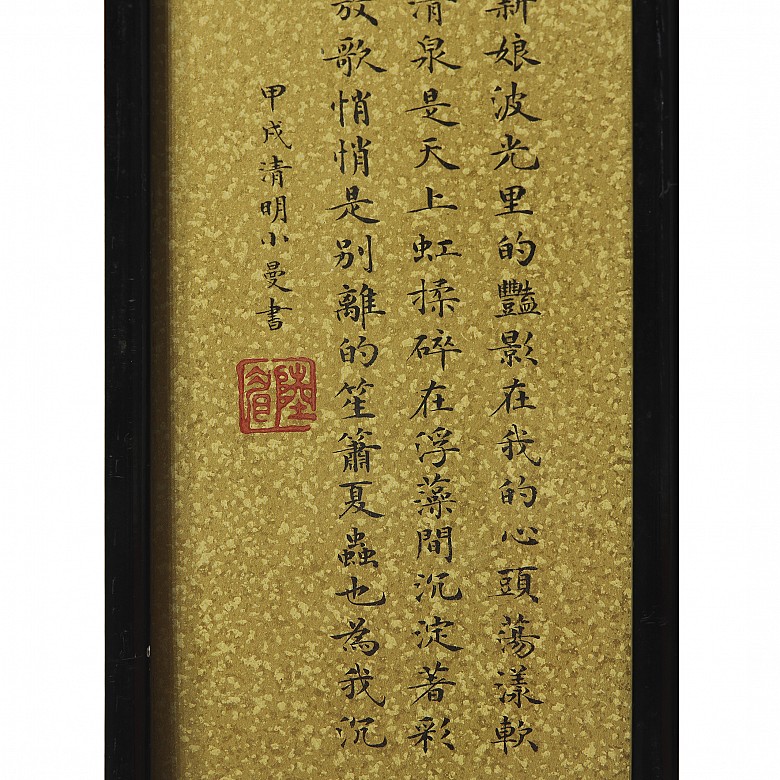 新娘波光里的豔影在我的心頭蕩漾軟
清泉是天上虹揉碎在浮藻間沉淀著彩
放歌悄悄是别離的笙簫夏蟲也為我沉
甲戌清明小曼書
陸眉